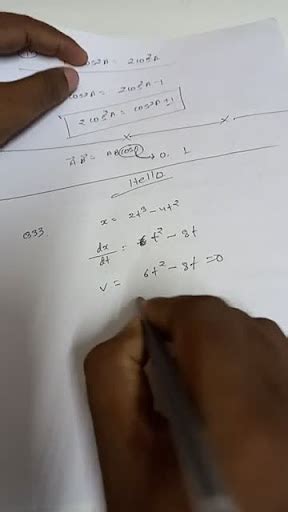 cos2A = 2cos²A
cos2A = 2cos²A-1
2cos²A = cos2A+1
A.B = AB cosθ → 0. 1
Hello
Q33. x = 2t³-4t²
dx/dt = 6t² - 8t
v = 6t² - 8t = 0